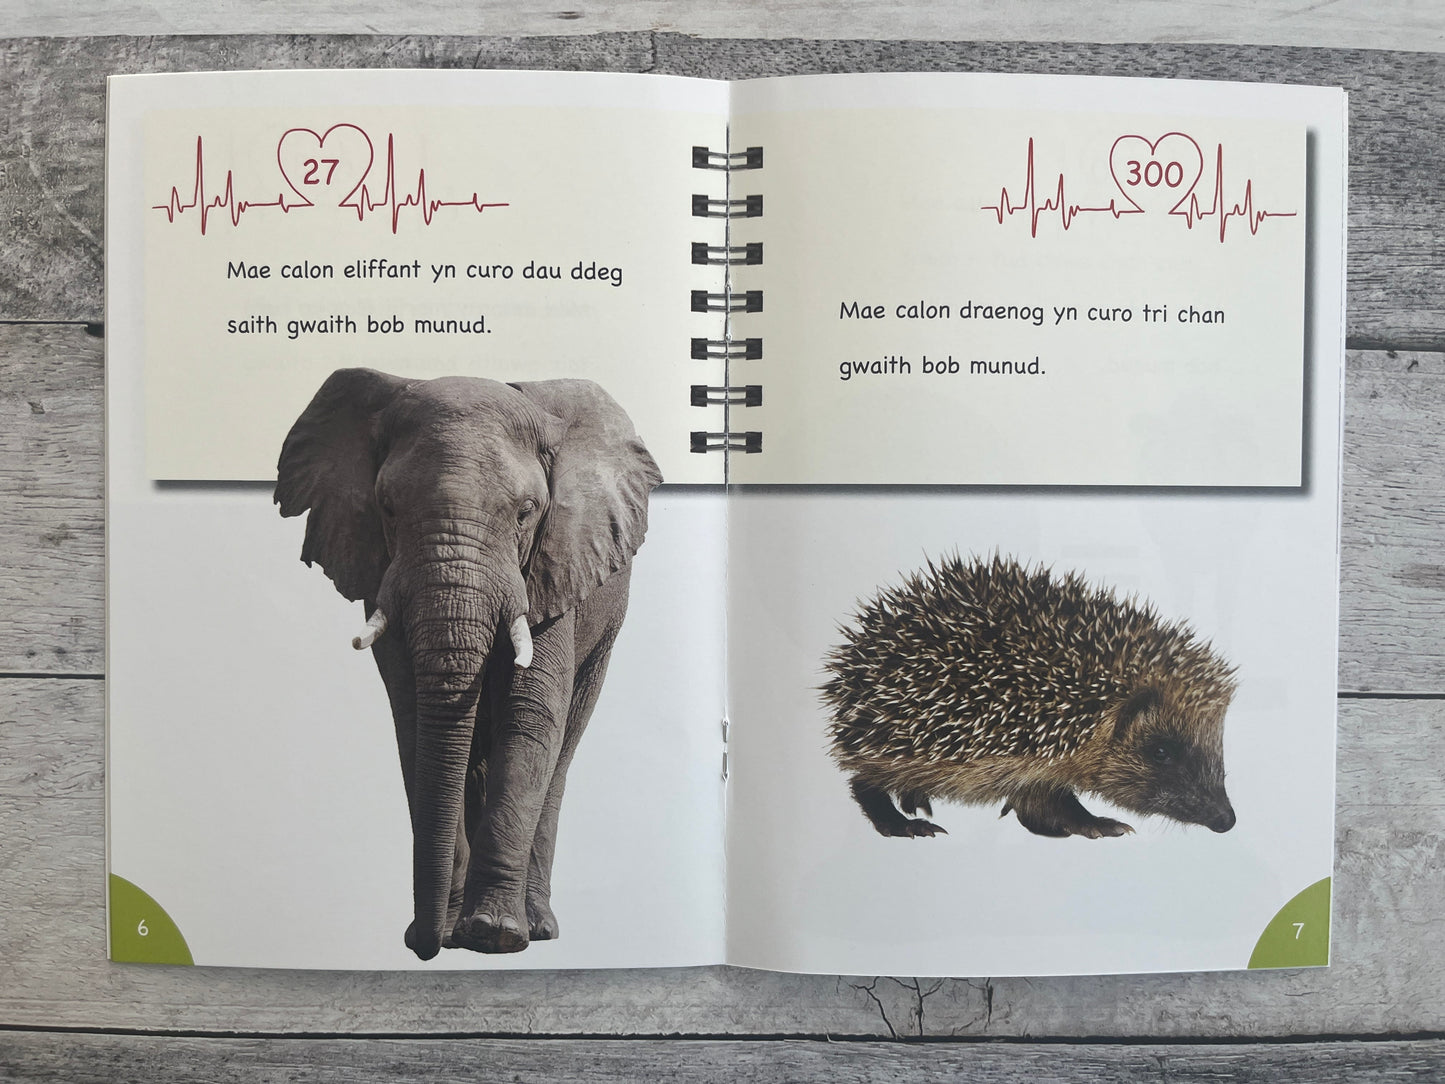 27
Mae calon eliffant yn curo dau ddeg
saith gwaith bob munud.
6
300
Mae calon draenog yn curo tri chan
gwaith bob munud.
7